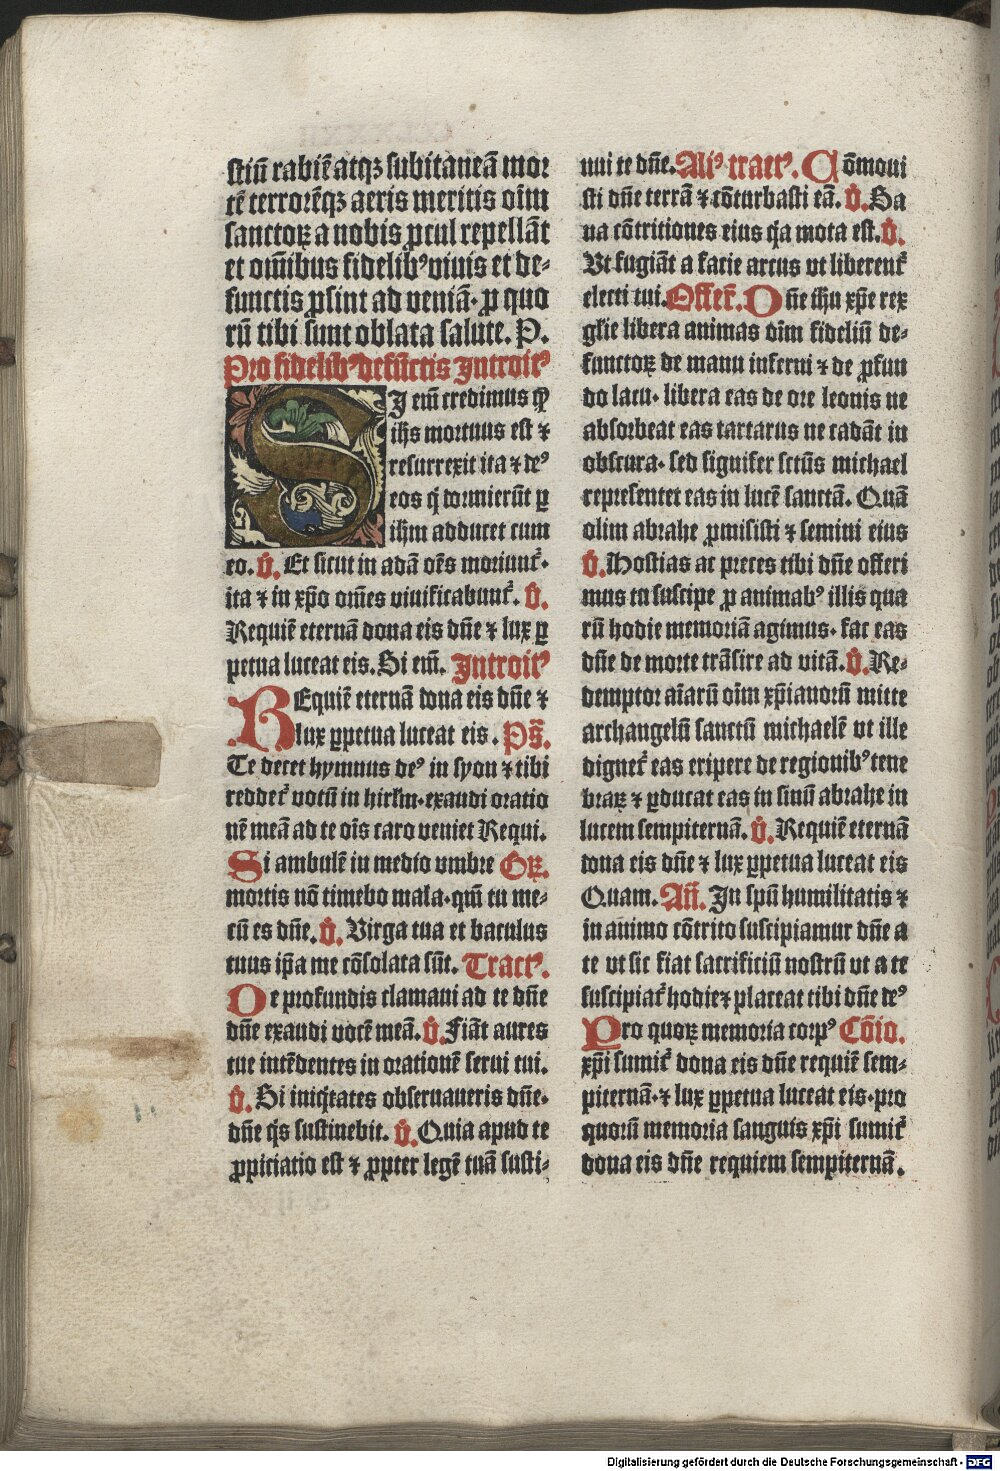 stiū rabiē atqꝫ subitaneā mor
tē terrorēqꝫ aeris meritis oīm
sanctoꝝ a nobis ꝓcul repellāt
et oīnibus fidelibꝰ viuis et de-
functis ꝓsint ad veniā. ꝓ quo
rū tibi sunt oblata salute. P.
Pro fidelibꝰ defūctis Introitꝰ
SI em̄ credimus ꝙ
ihs mortuus est ⁊
resurrexit ita ⁊ deꝰ
eos q̇ dormierūt ꝑ
ihm adducet cum
eo. V̇. Et sicut in adā oēs moriunt᷑.
ita ⁊ in xp̄o om̄es viuificabunt᷑. V̇.
Requiē eternā dona eis dn̄e ⁊ lux ꝑ
petua luceat eis. Si em̄. Introitꝰ
REquiē eternā dona eis dn̄e ⁊
lux ꝑpetua luceat eis. Ps̄.
Te decet hymnus deꝰ in syon ⁊ tibi
reddet᷑ votū in hirlm̄. exaudi oratio
nē meā ad te oīs caro veniet Requi.
Si ambulē in medio vmbre Gꝝ.
mortis nō timebo mala. qm̄ tu me-
cū es dn̄e. V̇. Virga tua et baculus
tuus ip̄a me cōsolata sūt. Tractꝰ.
De profundis clamaui ad te dn̄e
dn̄e exaudi vocē meā. V̇. Fiāt aures
tue intēdentes in orationē serui tui.
V̇. Si iniq̇tates obseruaueris dn̄e.
dn̄e q̇s sustinebit. V̇. Quia apud te
ꝓpiciatio est ⁊ ꝓpter legē tuā susti-
nui te dn̄e. Aliꝰ tractꝰ. Cōmoui
sti dn̄e terrā ⁊ cōturbasti eā. V̇. Sa
na cōtritiones eius q̇a mota est. V̇.
Vt fugiāt a facie arcus vt liberent᷑
electi tui. Offert᷑. Dn̄e ihu xp̄e rex
glīe libera animas oīm fideliū de-
functoꝝ de manu inferni ⁊ de ꝓfun
do lacu. libera eas de ore leonis ne
absorbeat eas tartarus ne cadāt in
obscura. sed signifer sctūs michael
representet eas in lucē sanctā. Quā
olim abrahe ꝓmisisti ⁊ semini eius
V̇. Hostias ac preces tibi dn̄e offeri
mus tu suscipe ꝓ animabꝰ illis qua
rū hodie memoriā agimus. fac eas
dn̄e de morte trāsire ad vitā. V̇. Re-
demptor aīarū oīm xp̄ianorū mitte
archangelū sanctū michaelē vt ille
dignet᷑ eas eripere de regionibꝰ tene
braꝝ ⁊ ꝑducat eas in sinū abrahe in
lucem sempiternā. V̇. Requiē eternā
dona eis dn̄e ⁊ lux ꝑpetua luceat eis
Quam. Añ. In spū humilitatis ⁊
in animo cōtrito suscipiamur dn̄e a
te vt sic fiat sacrificiū nostrū vt a te
suscipiat᷑ hodie ⁊ placeat tibi dn̄e deꝰ
Pro quoꝝ memoria corpꝰ Cōio.
xp̄i sumit᷑ dona eis dn̄e requiē sem-
piternā. ⁊ lux ꝑpetua luceat eis. pro
quorū memoria sanguis xp̄i sumit᷑
dona eis dn̄e requiem sempiternā.
Digitalisierung gefördert durch die Deutsche Forschungsgemeinschaft - DFG